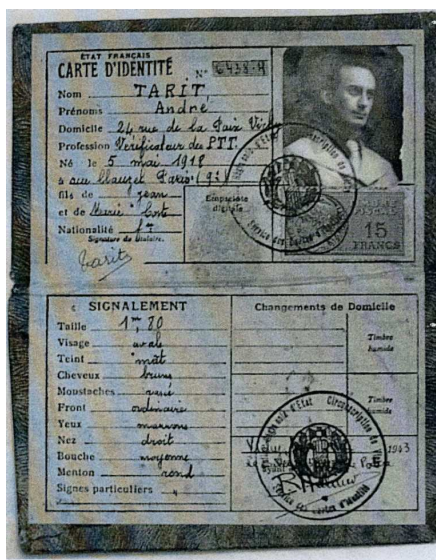 ÉTAT FRANÇAIS
CARTE D'IDENTITÉ N°
Nom TARIT
Prénoms André
Domicile 24 rue de la Paix Vichy
Profession Vérificateur des P.T.T.
Né le 5 mai 1918
à rue Clauzel Paris (9e)
fils de Jean
et de Marie
Nationalité fse
Signature du titulaire.
Tarit
Empreinte digitale
15
FRANCS
SIGNALEMENT
Taille 1m,80
Visage ovale
Teint mat
Cheveux bruns
Moustaches rasé
Front ordinaire
Yeux marrons
Nez droit
Bouche moyenne
Menton rond
Signes particuliers
Changements de Domicile
Timbre humide
Timbre humide
1943